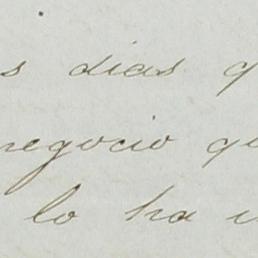 s dias q
negocio qu
lo ha